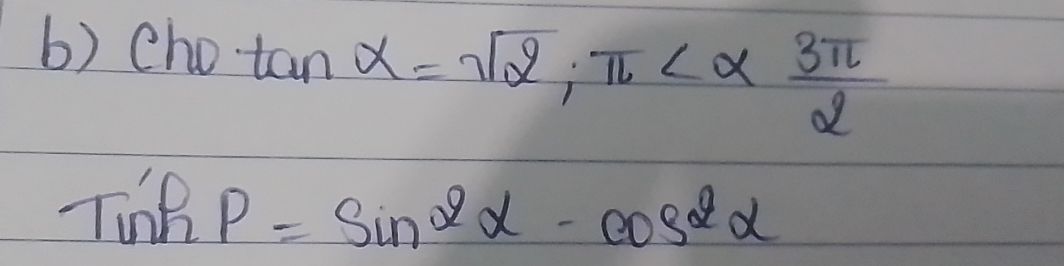 b) Cho tan α = √2 ; π < α 3π/2
Tính P = Sin 2α - cos 2α